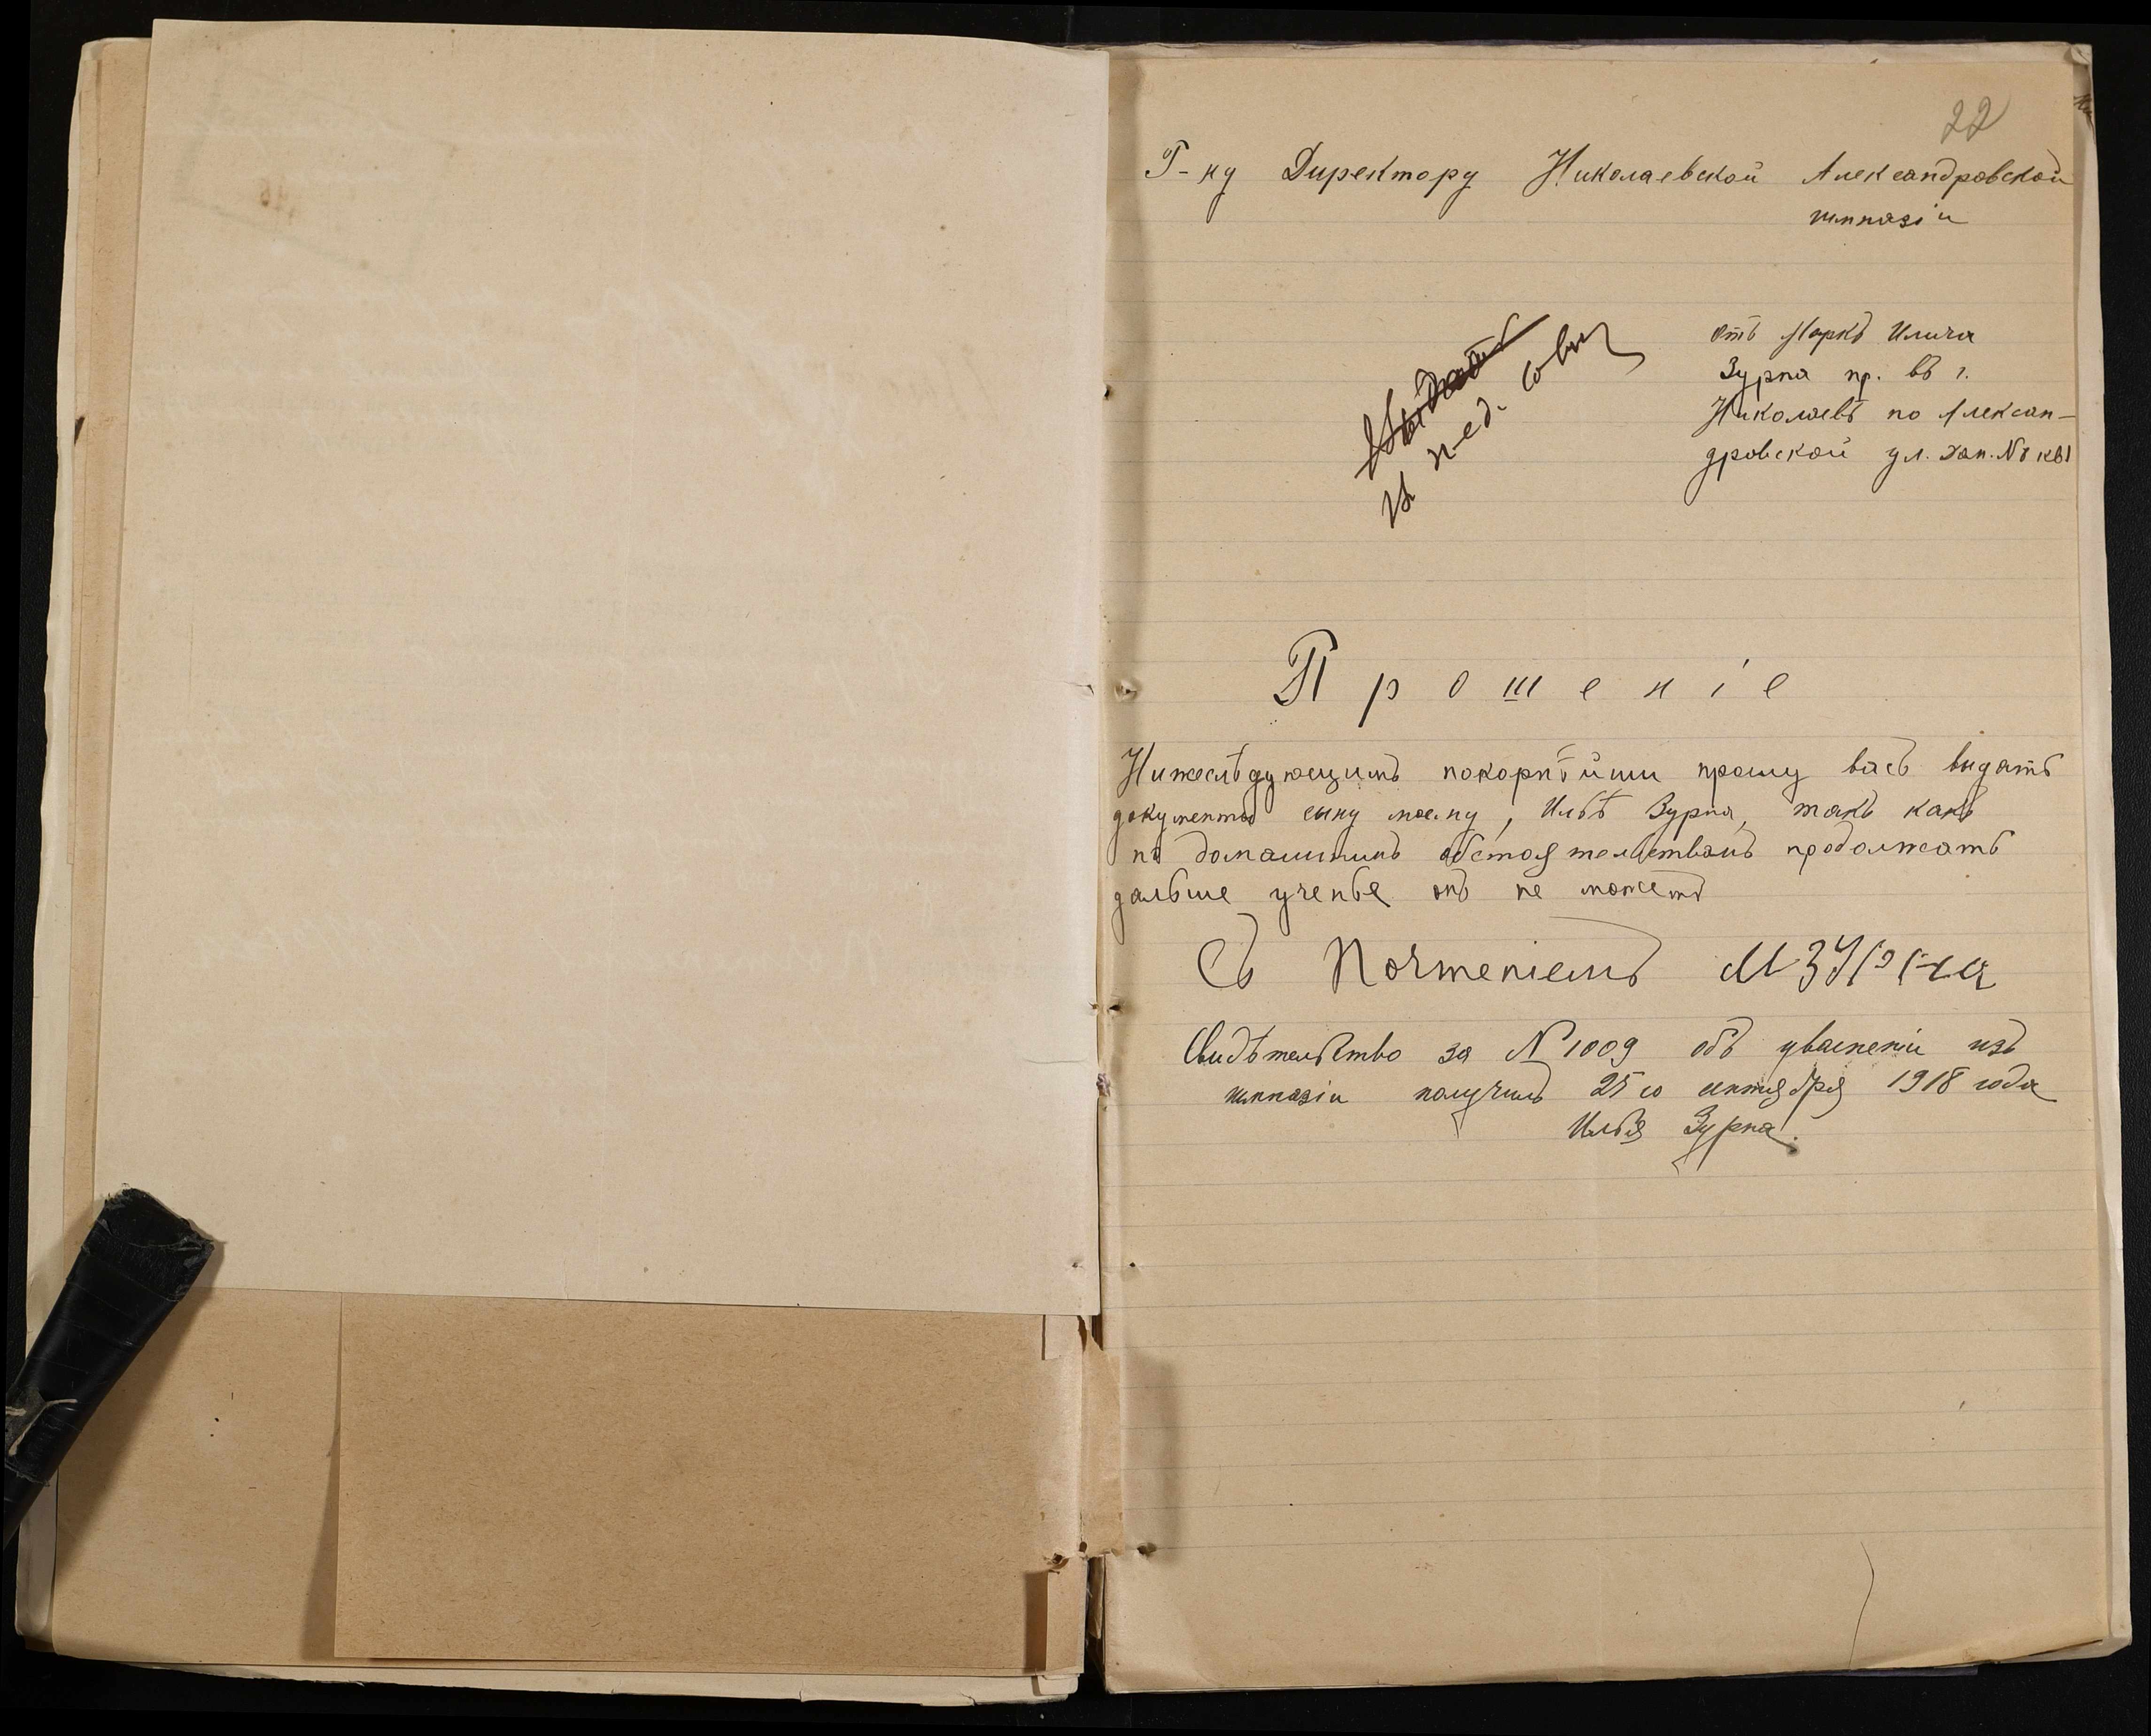 22
Г-ну Директору Николаевской Александровской
гимназіи
Отъ Маркъ Илича
Зурна пр. въ г.
Николаевѣ по Алексан-
дровской ул.
Выдать
Въ пед. совѣт
Прошеніе
Нижеслѣдующимъ покорнѣйши прошу васъ видать
документы сыну моему, Ильѣ Зурна, такъ какъ
по домашнимъ обстоятельствамъ продолжать
дальше ученье онъ не можетъ
Съ Почтеніемъ М Зурна
Свидѣтельство за № 1009 объ увольненіи изъ
гимназіи получилъ 25 го 1918 года
Илья Зурна.